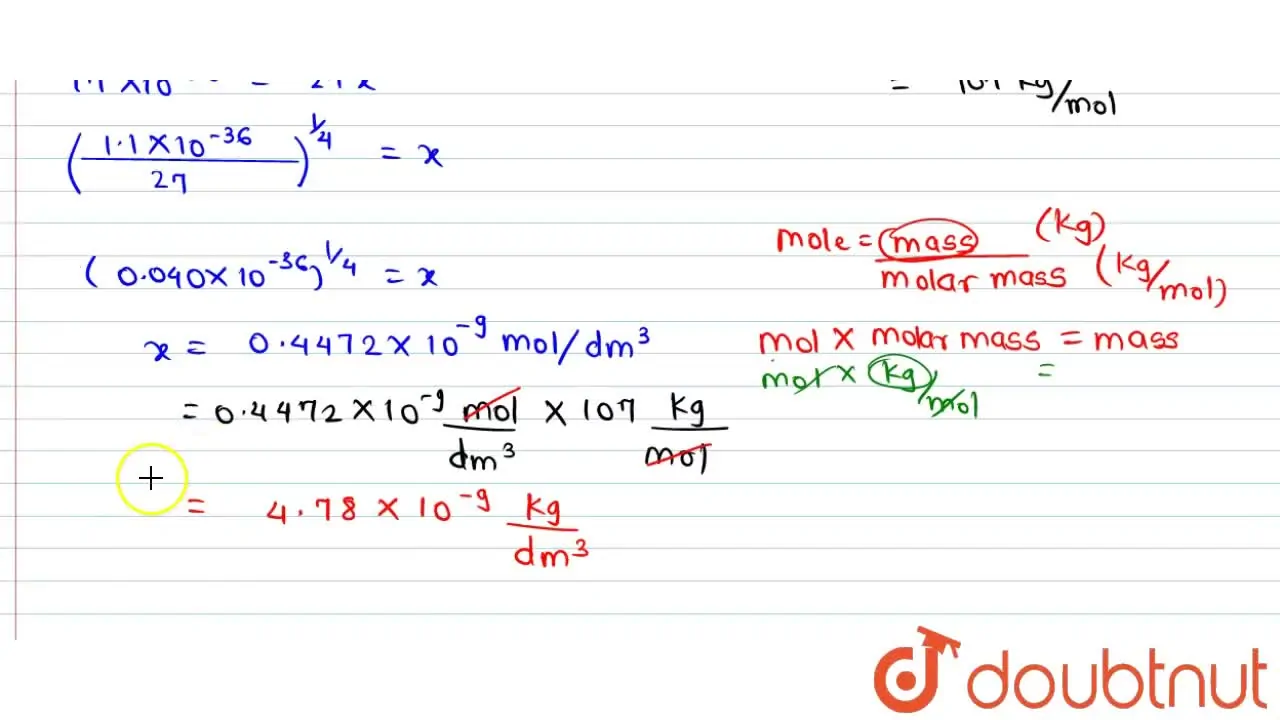 (1.1 × 10⁻³⁶ / 27)^1/4 = x
(0.040 × 10⁻³⁶)^1/4 = x
x = 0.4472 × 10⁻⁹ mol/dm³
= 0.4472 × 10⁻⁹ mol/dm³ × 107 kg/mol
= 4.78 × 10⁻⁹ kg/dm³
= kg/mol
mole = mass (kg) / molar mass (kg/mol)
mol × molar mass = mass
mol × kg/mol =
doubtnut